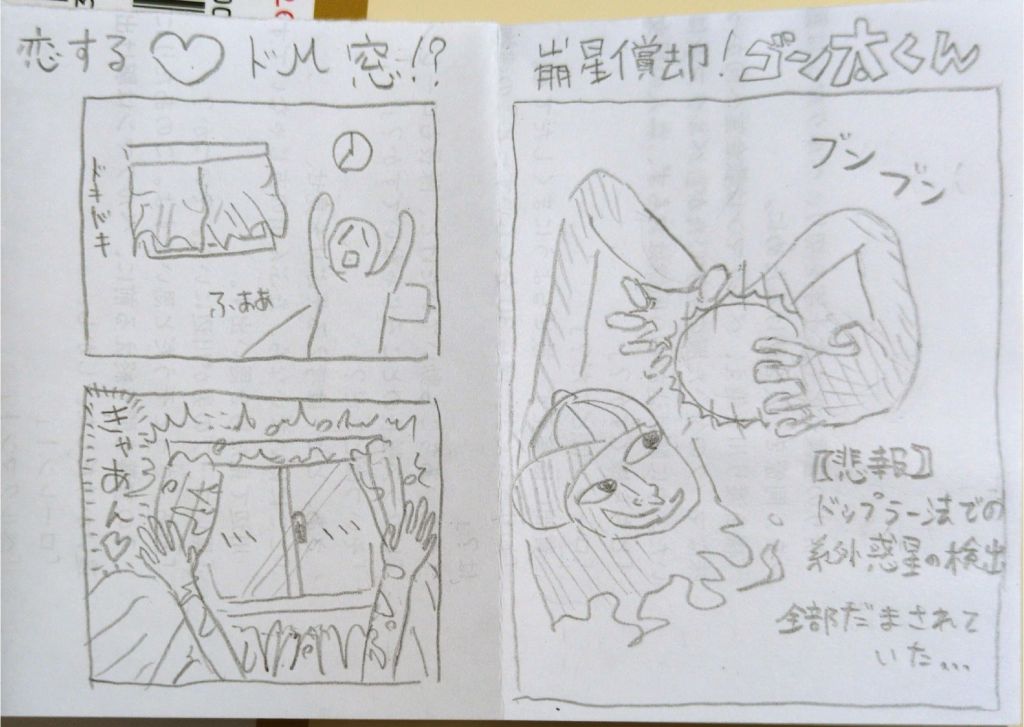 恋する♡ドM窓!?
ドキドキ
ふああ
きゃあん♡
崩星償却!ゴン太くん
ブン
ブン
【悲報】
ドップラー法での
系外惑星の検出
全部だまされて
いた...